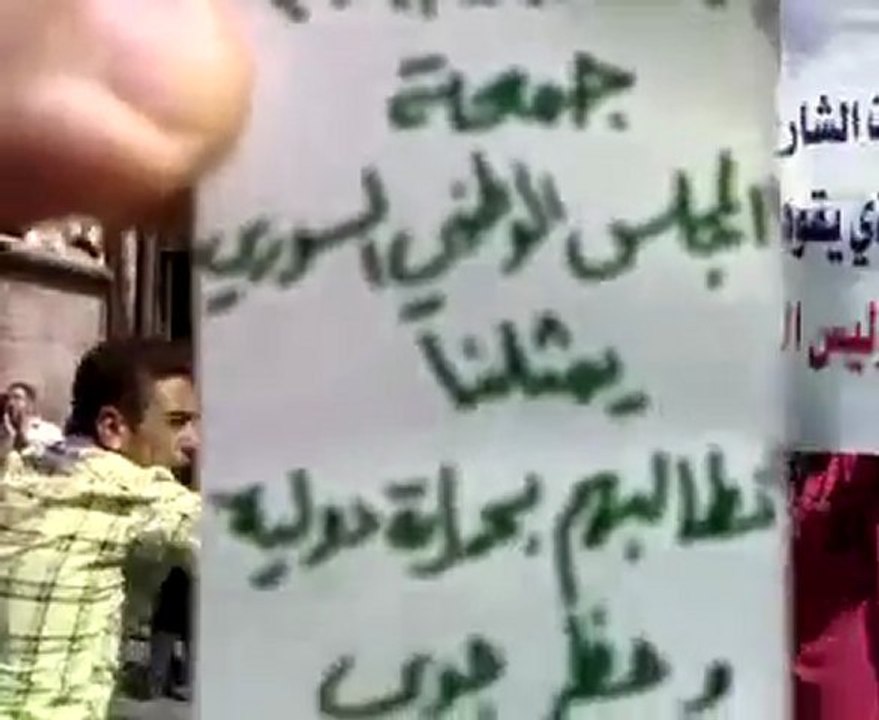 جمعة
المجلس الوطني السوري
يمثلنا
نطالبهم بحماية دولية
و حظر جوي
الشار
وليس